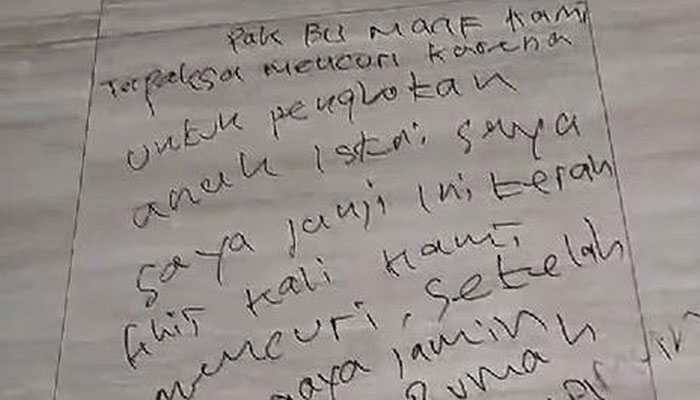 Pak BU MAAF Kami
Terpaksa mencuri karena
untuk pengbotan
anak istri saya
saya janji ini terah
khir kali kami
mencuri, setelah
saya jamin
Rumah